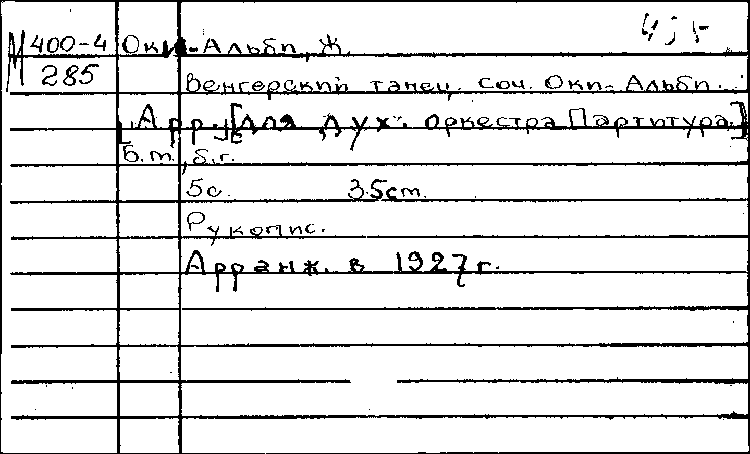 М 400-4 Оки-Альби, Ж.
285
Венгерский танец. соч. Оки-Альби.
[Арр.] [для дух. оркестра Партитура.]
Б.m., б.г.
5с. 35cm.
Рукопис.
Арранж. в 1927г.